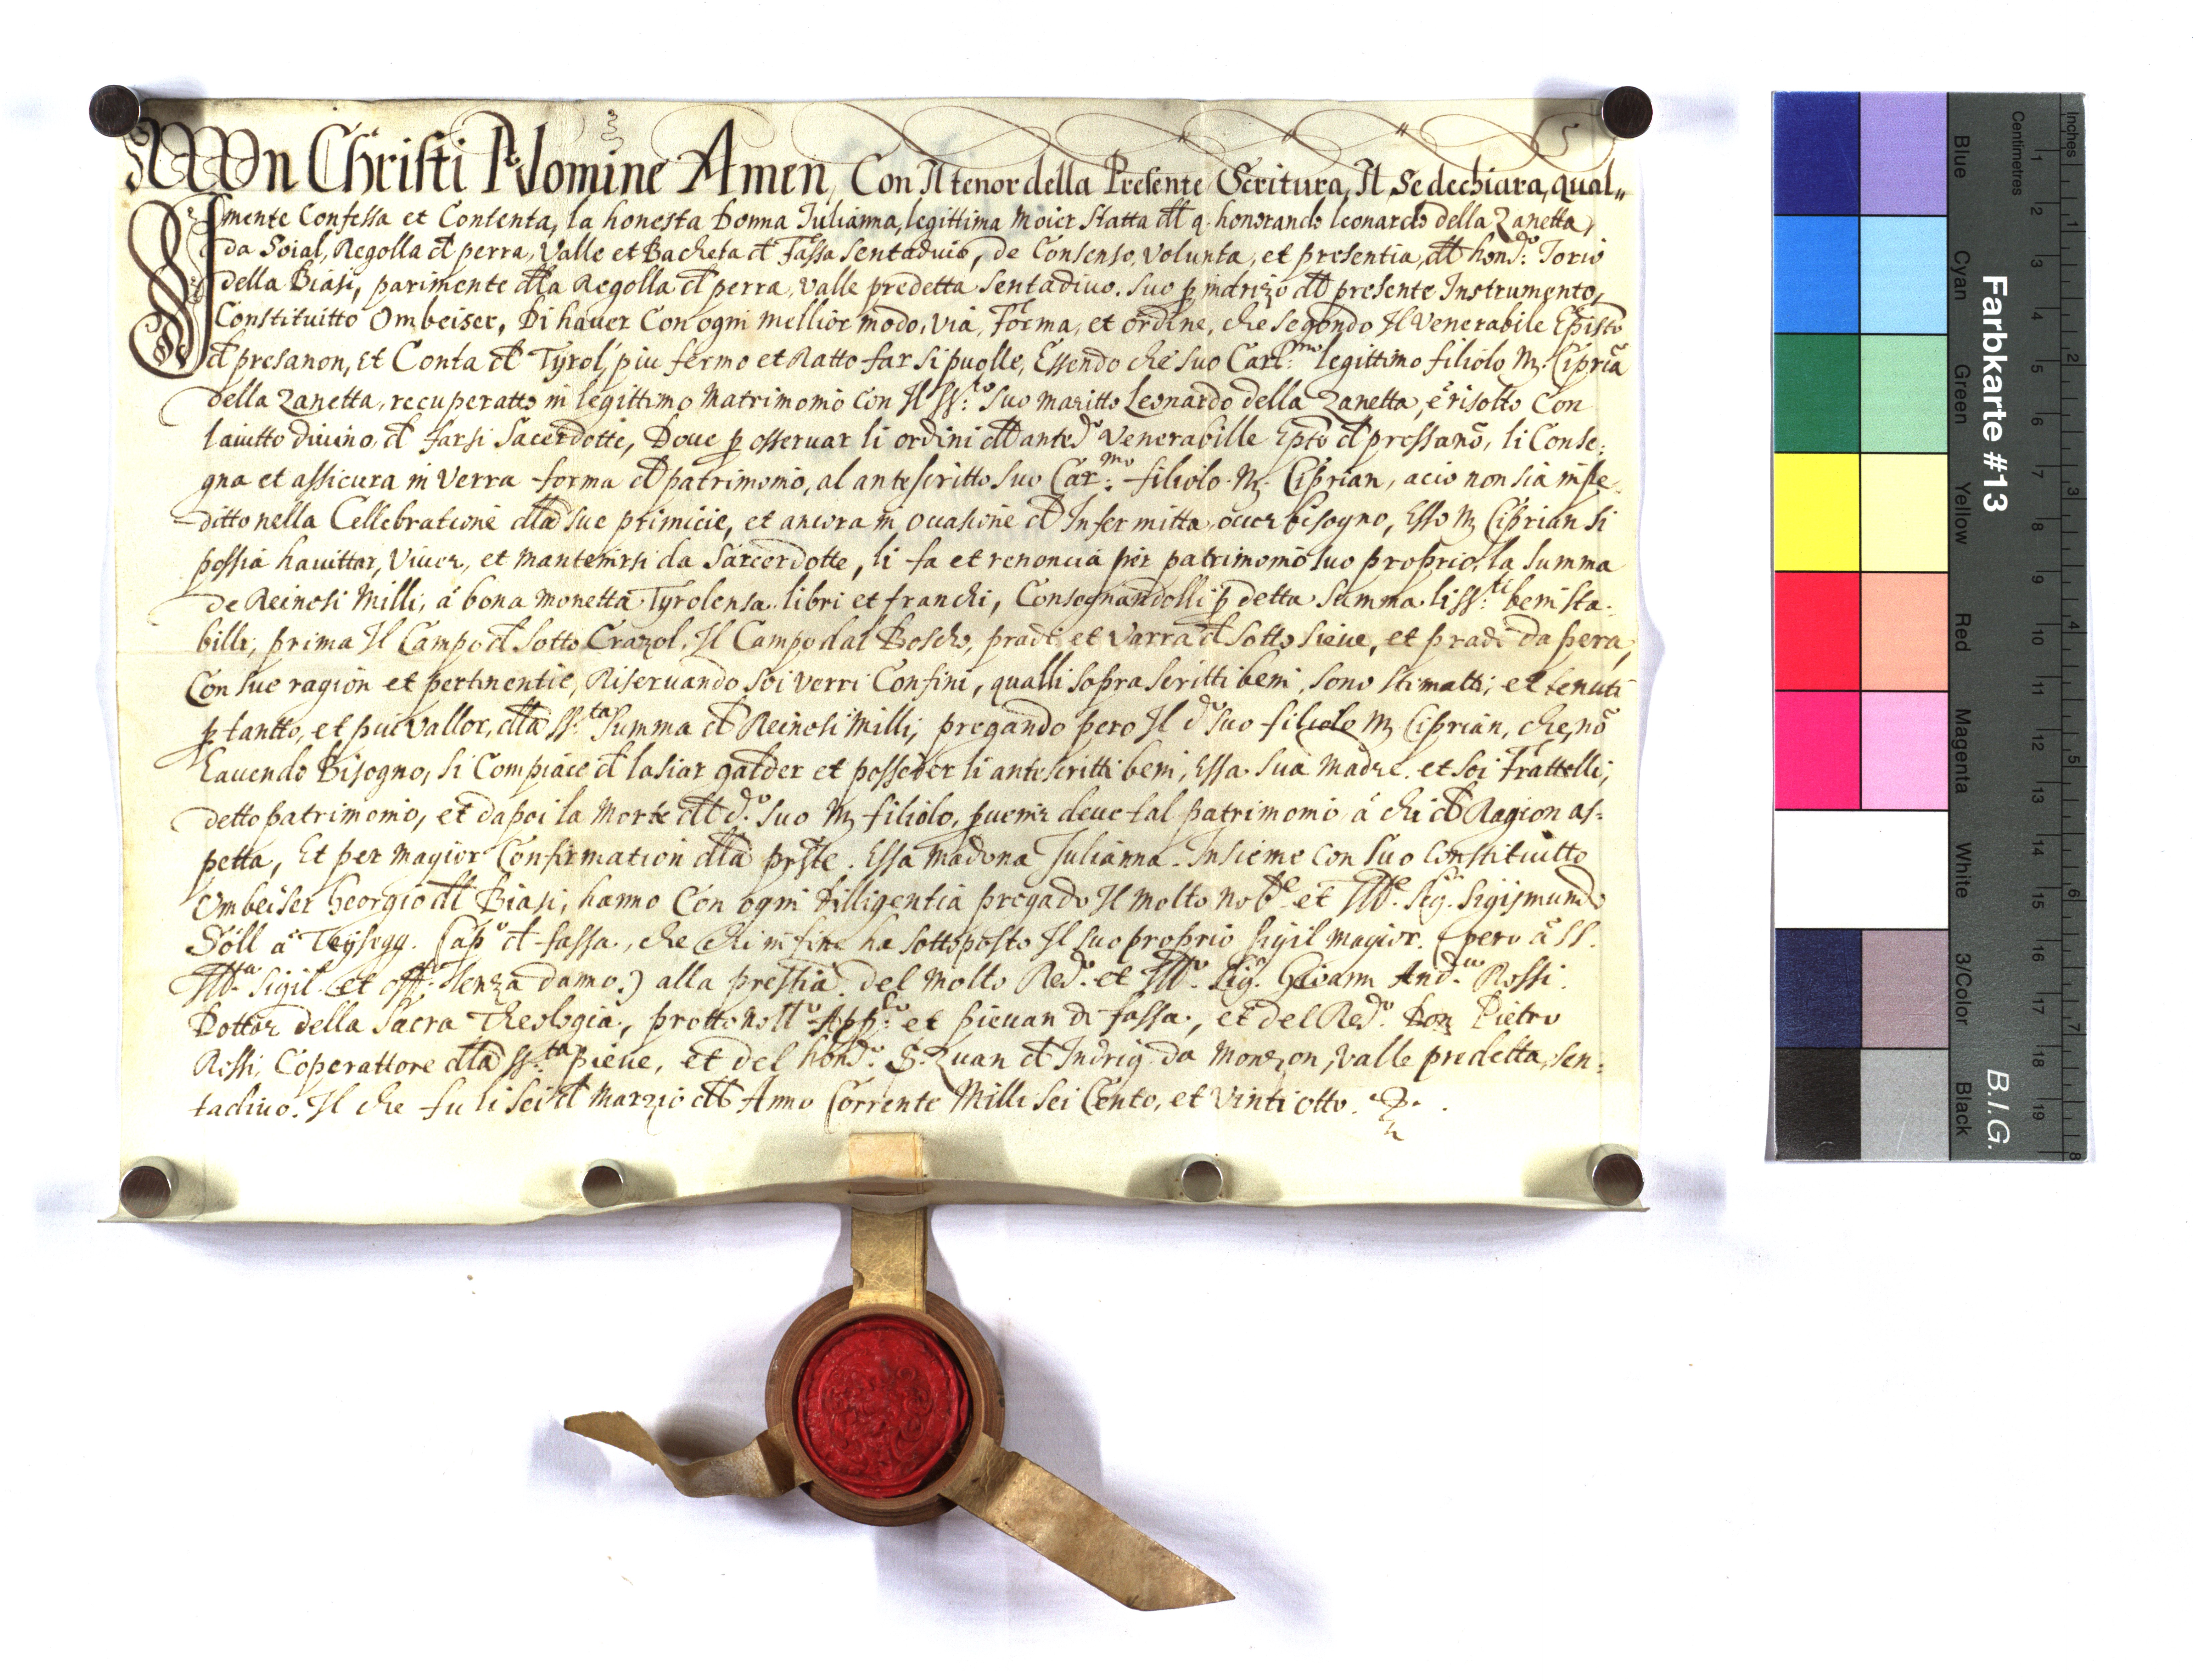 In Christi Nomine Amen, Con Il tenor della Presente Scritura, Il Se dechiara, qual„
mente Confessa et Contenta, la honesta Donna Iulianna, legittima moier statta dll q. honorando leonardo della Zanetta,
da Soial, Regolla d perra, Valle et Bacheta d Fassa sentaduio, de Consenso, Volunta, et presentia, dll hondo: Iorio
della Biasi, parimente dlla Regolla d perra, valle predetta sentadiuo. suo p indrizo dll presente Instrumento,
Constituitto Ombeiser, Di hauer Con ogni mellior modo, via, Forma, et ordine, che segondo Il Venerabile Episto
d presanon, et Conta d Tyrol, piu fermo et Ratto far si puolle, Essendo che suo Carl:mo legittimo filiolo M. Cipria
della Zanetta, recuperatto in legittimo Matrimonio Con Il ss:to suo maritto Leonardo della Zanetta, è risolto Con
laiutto diuino, d farsi Sacerdotte, Doue p osseruar li ordini dll anted.o Venerabille Epto d pressano, li Conse:
gna et assicura in Verra forma d patrimonio, al antescritto suo Car:mo filiolo M. Ciprian, acio non sia inpe
ditto nella Cellebratione dlla sue primicie, et ancora in ocasione d Infermitta, ouer bisogno, Esso M Ciprian si
possia hauittar, Viuer, et mantenirsi da Sarcerdotte, li fa et renoncia per patrimonio suo proprio, la summa
de Reinesi Milli, à bona monetta Tyrolensa. libri et franchi, Consegnandolli p detta Summa. li ss:ti beni sta:
billi, prima Il Campo d Sotto Crazol, Il Campo dal Bosco, pradi et Varra d Sotto sieue, et pradi da pera,
Con sue ragion et pertinentie, Riseruando soi verri Confini, qualli sopra scritti beni, sono stimatti, et tenuti
p tantto, et piu vallor, dlla ss:ta summa d Reinesi Milli, pregando pero Il d.o suo filiolo M Ciprian, che, nõ
hauendo Bisogno, si Compiace d lasiar galder et posseder li antescritti beni, Essa sua Madre. et soi Frattelli,
detto patrimonio, et dapoi la Morte dll d.o suo M filiolo, puenir deue tal patrimonio à chi d Ragion as:
petta, Et per magior Confirmation dlla prste. Essa madona Julianna. Insieme Con suo Constituitto
Ombeiser Georgio dll Biasi, hanno Con ogni dilligentia pregado Il molto nob.e et Ill.e sig.r Sigismundo
Söll à Teysegg. Cap.o d fassa., che chi in fine ha sottoposto Il suo proprio sigil magior. (pero à ss.
Ill.ta sigil. et off.o senza damo.) alla prestia. del molto Red.o et Ill.o Sig.r Gioann And.ea Rossi.
Dottor della Sacra Theologia., prottonoll.o App.co et pieuan di fassa., et del Red.o Don Pietro
Rossi, Coperattore dlla ss:ta pieue, et del hond.o S. Zuan d Indrig da Monzon, valle predetta, sen:
tadiuo. Il che fu li sei d Marzio dll Anno Corrente Mille sei Cento, et Vinti otto.
Farbkarte #13
B.I.G.
Centimetres
Inches
Blue
Cyan
Green
Yellow
Red
Magenta
White
3/Color
Black
1 2 3 4 5 6 7 8 9 10 11 12 13 14 15 16 17 18 19
1 2 3 4 5 6 7 8